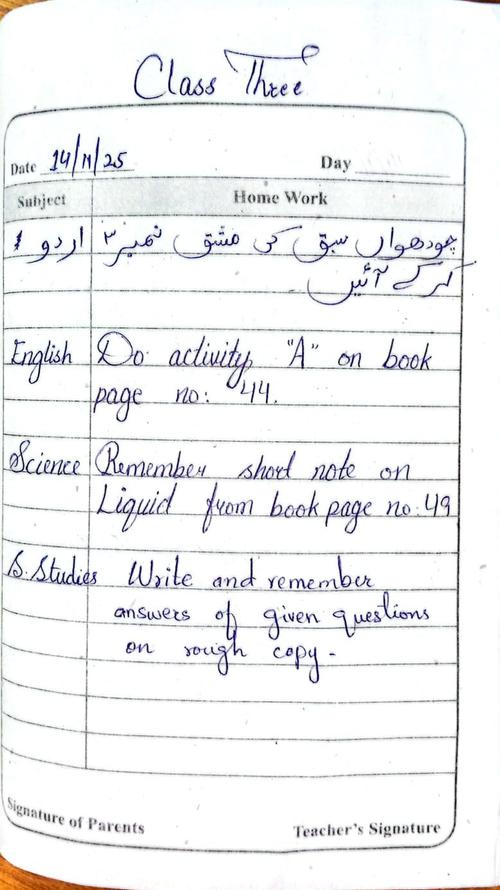 Class Three
Date 14/11/25 Day
Subject Home Work
اردو چودھواں سبق کی مشق نمبر ۳
کرکے آئیں
English Do activity "A" on book
page no: 44.
Science Remember short note on
Liquid from book page no: 49
S. Studies Write and remember
answers of given questions
on rough copy -
Signature of Parents Teacher's Signature